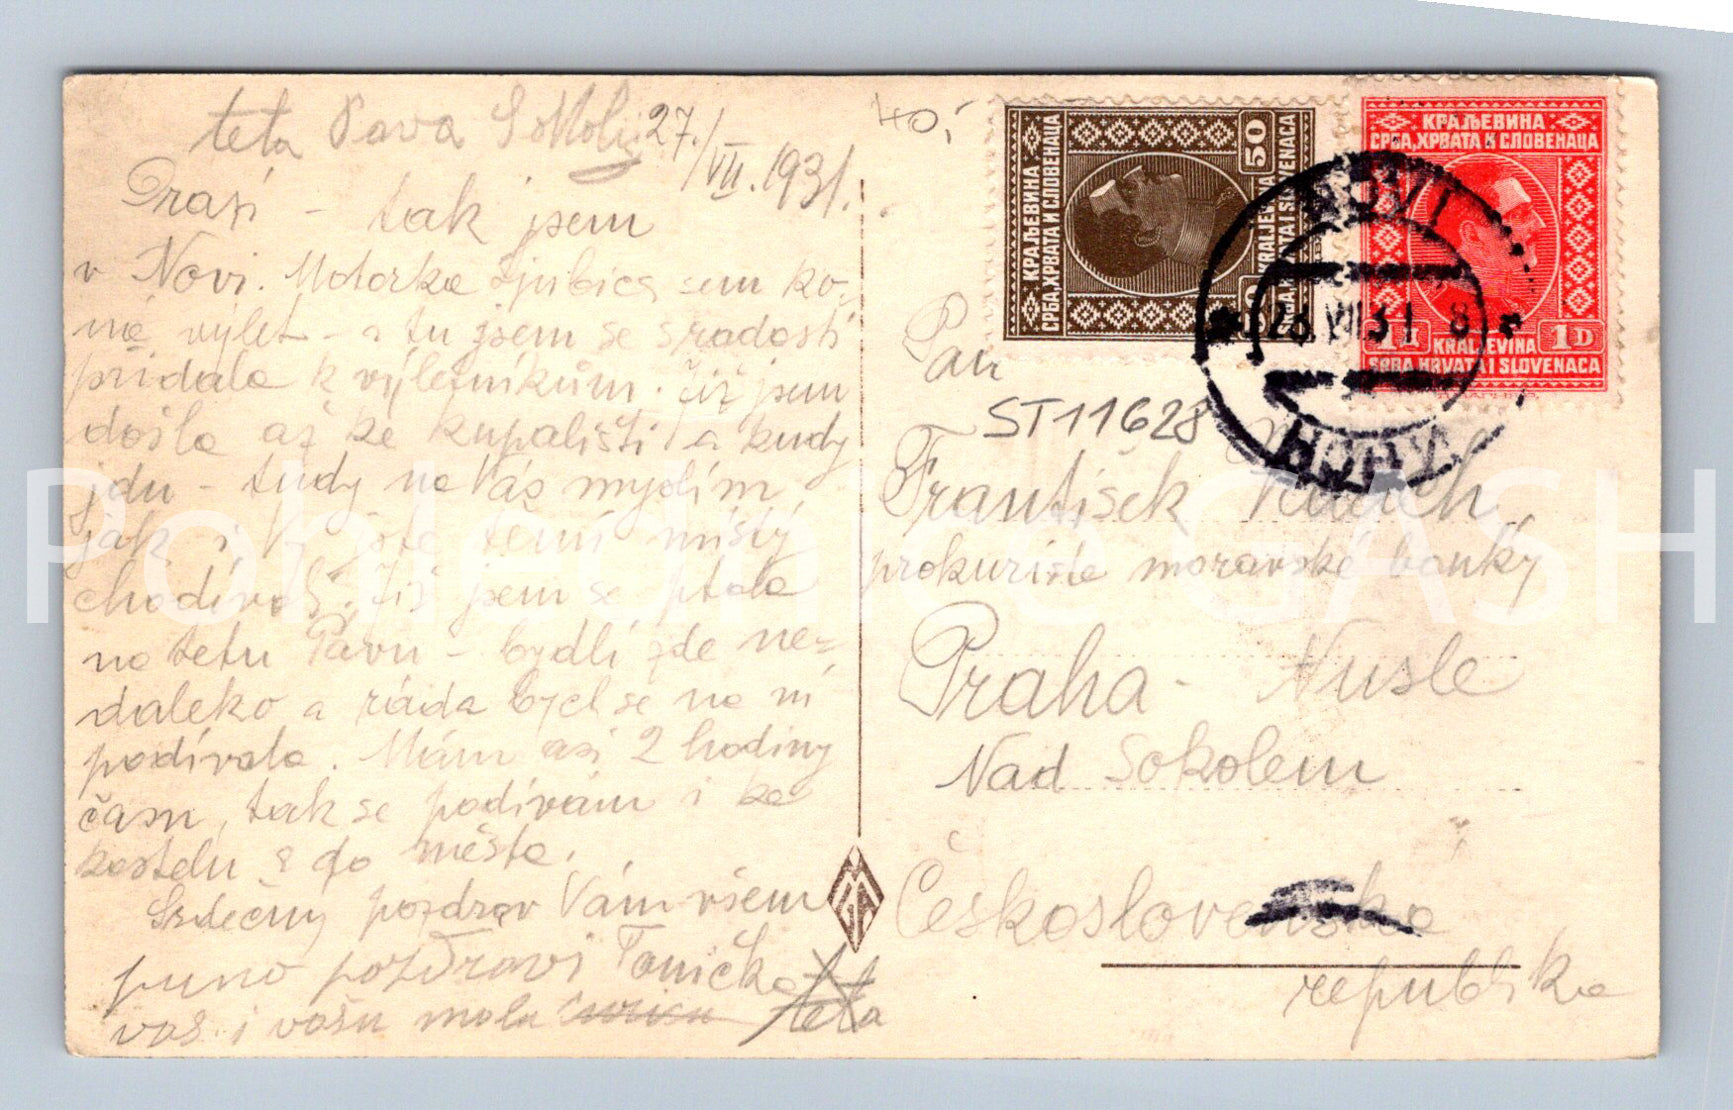 teta Pava Sokolij 27./VII.1931.
Drazí - tak jsem
v Novi. Motorka Ljubica sem ko-
ná výlet - a tu jsem se s radostí
přidala k výletníkům. Již jsem
došla až ke kupališti a kudy
jdu - tudy na Vás myslím
jak i Vy jste těmi místy
chodívali. Již jsem se ptala
na tetu Pavu - bydlí zde ne-
daleko a ráda bych se na ni
podívala. Mám asi 2 hodiny
času, tak se podívám i ke
kostelu a do města.
Srdečný pozdrav Vám všem
puno pozdravi Tonička
vas i vašu malu teta
40,-
КРАЉЕВИНА
СРБА, ХРВАТА И СЛОВЕНАЦА
50
KRALJEVINA
SRBA, HRVATA I SLOVENACA
КРАЉЕВИНА
СРБА, ХРВАТА И СЛОВЕНАЦА
1Д 1D
KRALJEVINA
SRBA HRVATA I SLOVENACA
NOVI
28.VII 31 8
НОВИ
Pan
ST11628
František
prokurista moravské banky
Praha - Nusle
Nad Sokolem
Československa
republika
MGA
Pohlednice GASH